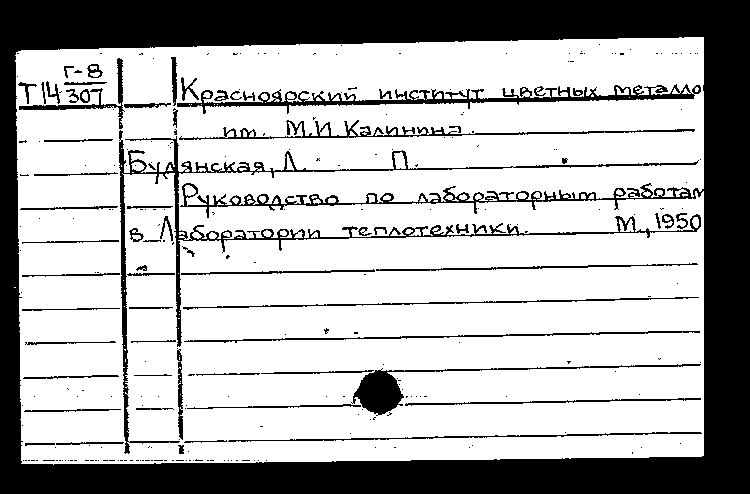 Г-8
Т14 307
Красноярский институт цветных металло
им. М.И. Калинина.
Будянская, Л. П.
Руководство по лабораторным работам
в Лаборатории теплотехники. М., 1950